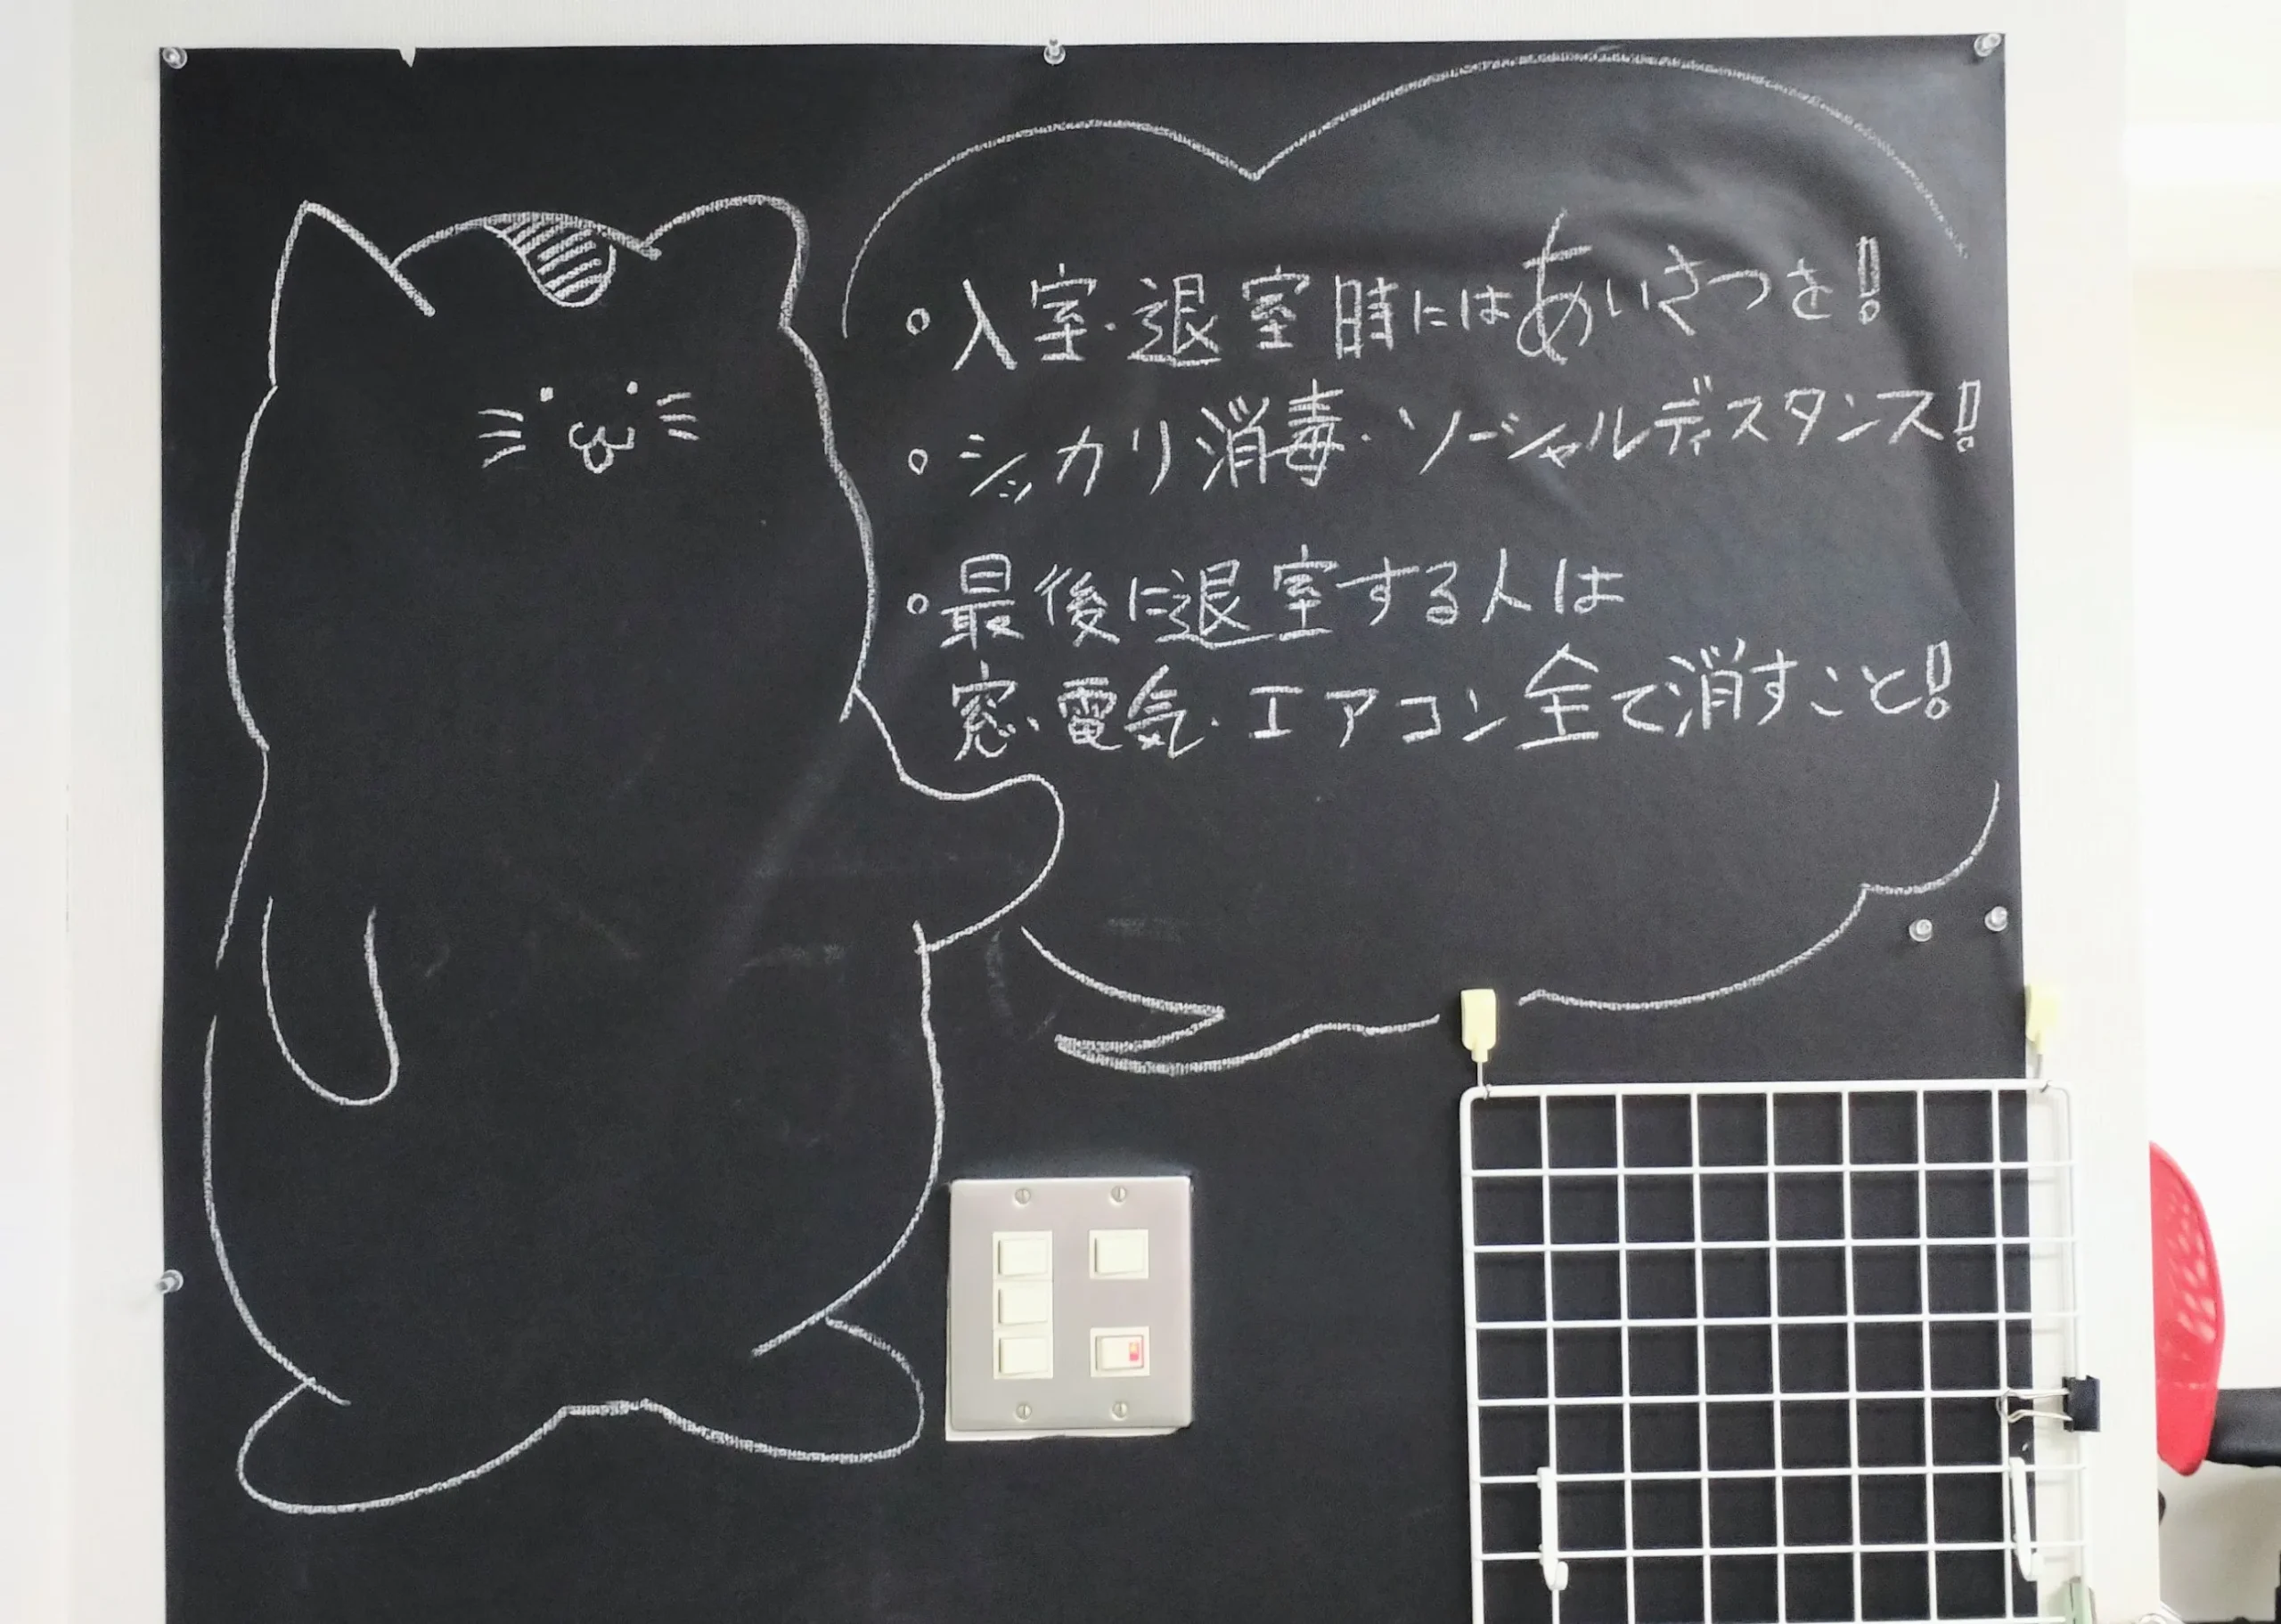 ○入室・退室時にはあいさつを!
○シッカリ消毒・ソーシャルディスタンス!
○最後に退室する人は
窓・電気・エアコン全て消すこと!